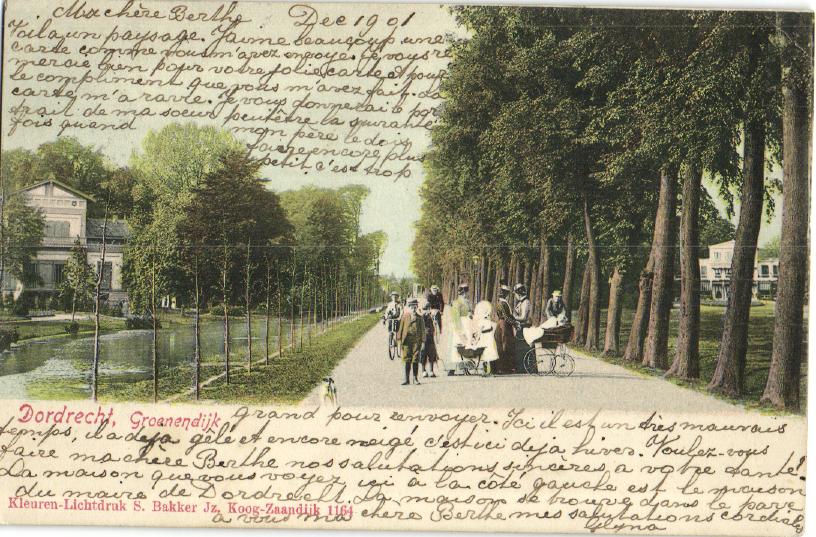 Ma chère Berthe Dec 1901
Voila un paysage. J'aime beaucoup une
carte comme vous m'avez envoyé. Je vous re
mercie bien pour votre jolie carte et pour
le compliment que vous m'avez fait. La
carte m'a ravie. Je vous donnerai le por
trait de ma soeur peutêtre la suivante
fois quand mon père le dois
faire encore plus
petit, c'est trop
Dordrecht, Groenendijk
grand pour envoyer. Ici il est un très mauvais
temps, il a deja gêlé et encore neigé c'est ici dija hiver. Voulez-vous
faire ma chère Berthe nos salutations sincères, a votre santé!
La maison que vous voyez ici à la côté gauche est le maison
du maire de Dordrecht. La maison se trouve dans le parc
Kleuren-Lichtdruk S. Bakker Jz. Koog-Zaandijk 1164
a vous ma chere Berthe mes salutations cordiales